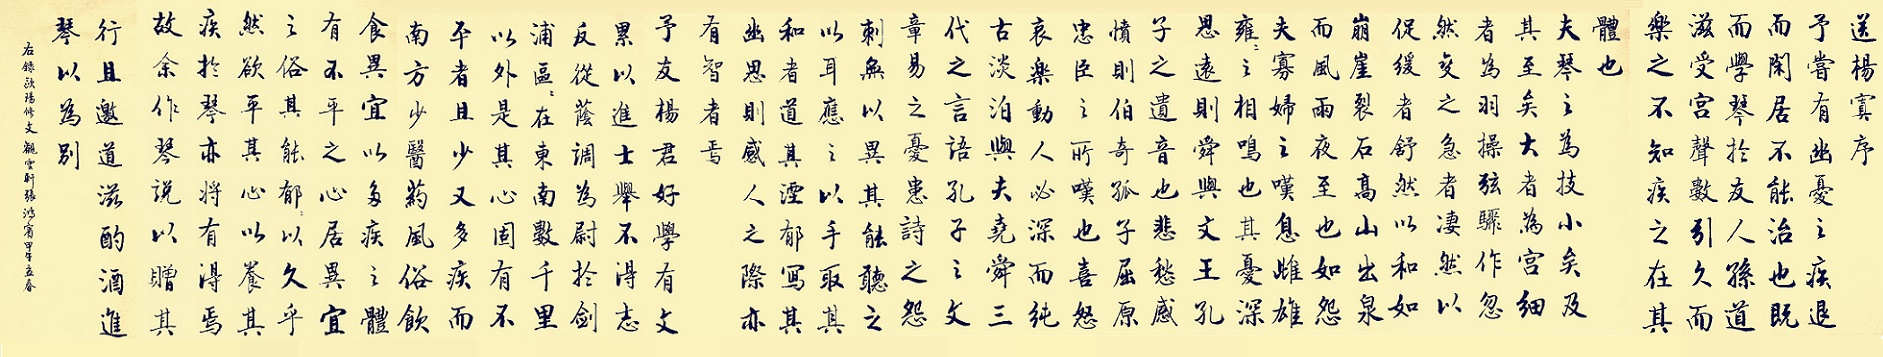 送楊寘序
予嘗有幽憂之疾退
而閑居不能治也既
而學琴於友人孫道
滋受宮聲數引久而
樂之不知疾之在其
體也
夫琴之為技小矣及
其至矣大者為宮細
者為羽操弦驟作忽
然变之急者凄然以
促緩者舒然以和如
崩崖裂石高山出泉
而風雨夜至也如怨
夫寡婦之嘆息雌雄
雍雍之相鳴也其憂深
思遠則舜與文王孔
子之遺音也悲愁感
憤則伯奇孤子屈原
忠臣之所嘆也喜怒
哀樂動人必深而純
古淡泊與夫堯舜三
代之言語孔子之文
章易之憂患詩之怨
刺無以異其能聽之
以耳應之以手取其
和者道其湮郁寫其
幽思則感人之際亦
有智者焉
予友楊君好學有文
累以進士舉不得志
反從蔭調為尉於劍
浦區區在東南數千里
以外是其心固有不
平者且少又多疾而
南方少醫藥風俗飲
食異宜以多疾之體
有不平之心居異宜
之俗其能郁郁以久乎
然欲平其心以養其
疾於琴亦將有得焉
故余作琴說以贈其
行且邀道滋酌酒進
琴以為別
右錄歐陽修文觀雲軒張鴻賓甲午立春